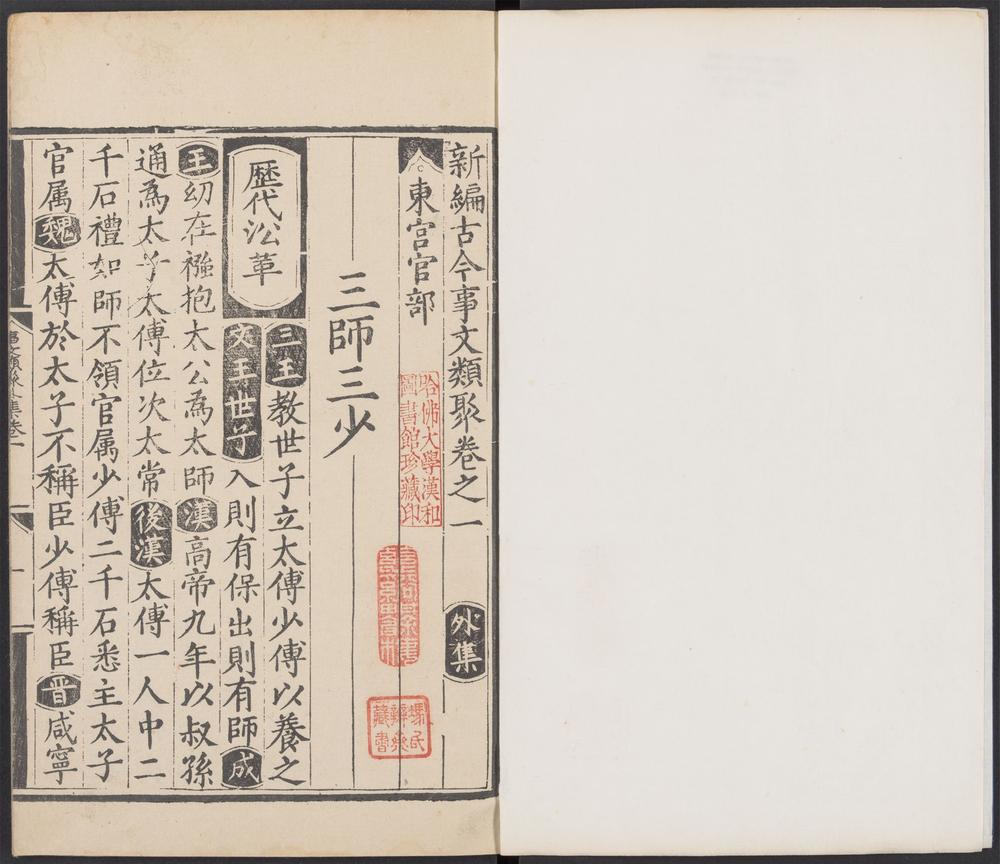 新編古今事文類聚卷之一 外集
東宮官部
哈佛大學漢和
圖書館珍藏印
三師三少
歷代㳂革
三王教世子立太傅少傅以養之
文王世子入則有保出則有師成
王幼在襁抱太公為太師漢高帝九年以叔孫
通為太子太傅位次太常後漢太傅一人中二
千石禮如師不領官属少傅二千石悉主太子
官属魏太傅於太子不稱臣少傅稱臣晋咸寧